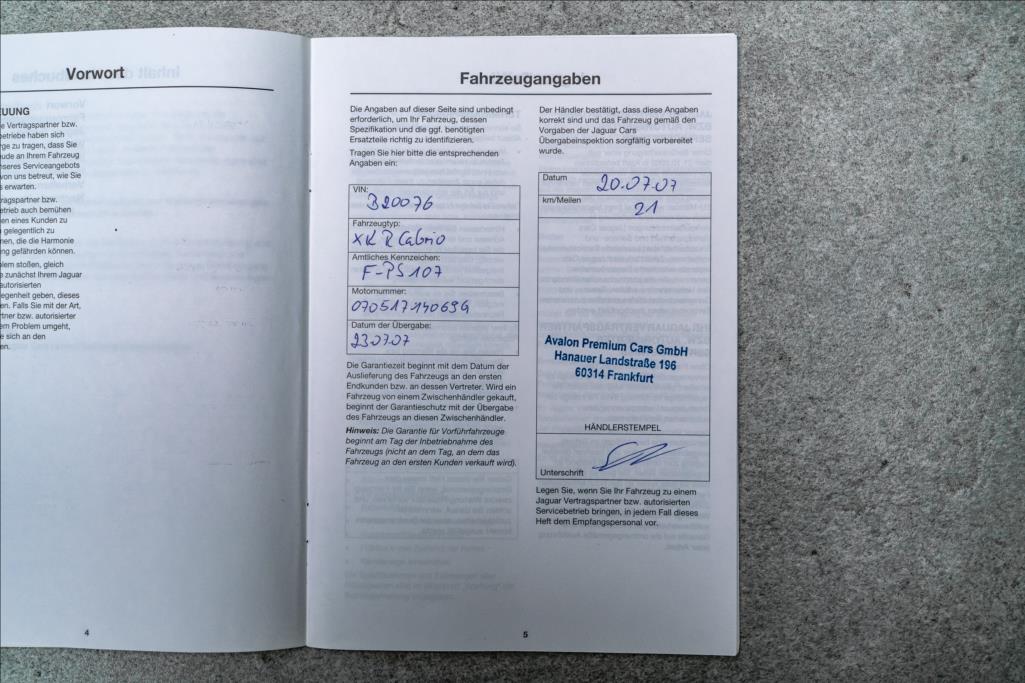 Vorwort
UUNG
e Vertragspartner bzw.
etriebe haben sich
rge zu tragen, dass Sie
ude an Ihrem Fahrzeug
nseres Serviceangebots
von uns betreut, wie Sie
s erwarten.
ragspartner bzw.
etrieb auch bemühen
en eines Kunden zu
gelegentlich zu
men, die die Harmonie
ng gefährden können.
lem stoßen, gleich
e zunächst Ihrem Jaguar
autorisierten
egenheit geben, dieses
en. Falls Sie mit der Art,
tner bzw. autorisierter
em Problem umgeht,
e sich an den
en.
4
Fahrzeugangaben
Die Angaben auf dieser Seite sind unbedingt
erforderlich, um Ihr Fahrzeug, dessen
Spezifikation und die ggf. benötigten
Ersatzteile richtig zu identifizieren.
Tragen Sie hier bitte die entsprechenden
Angaben ein:
VIN:
B20076
Fahrzeugtyp:
XKR Cabrio
Amtliches Kennzeichen:
F-PS 107
Motornummer:
070517140639
Datum der Übergabe:
23.07.07
Die Garantiezeit beginnt mit dem Datum der
Auslieferung des Fahrzeugs an den ersten
Endkunden bzw. an dessen Vertreter. Wird ein
Fahrzeug von einem Zwischenhändler gekauft,
beginnt der Garantieschutz mit der Übergabe
des Fahrzeugs an diesen Zwischenhändler.
Hinweis: Die Garantie für Vorführfahrzeuge
beginnt am Tag der Inbetriebnahme des
Fahrzeugs (nicht an dem Tag, an dem das
Fahrzeug an den ersten Kunden verkauft wird).
Der Händler bestätigt, dass diese Angaben
korrekt sind und das Fahrzeug gemäß den
Vorgaben der Jaguar Cars
Übergabeinspektion sorgfältig vorbereitet
wurde.
Datum
20.07.07
km/Meilen
21
Avalon Premium Cars GmbH
Hanauer Landstraße 196
60314 Frankfurt
HÄNDLERSTEMPEL
Unterschrift
Legen Sie, wenn Sie Ihr Fahrzeug zu einem
Jaguar Vertragspartner bzw. autorisierten
Servicebetrieb bringen, in jedem Fall dieses
Heft dem Empfangspersonal vor.
5